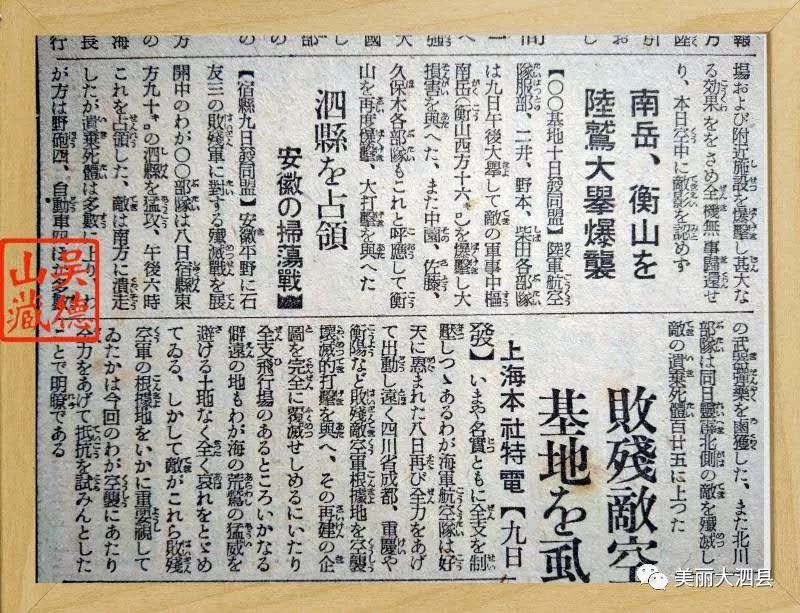 場および附近施設を爆撃し甚大な
る効果ををさめ全機無事歸還せ
り、本日空中に敵影を認めず
南岳、衡山を
陸鷲大擧爆襲
【〇〇基地十日發同盟】陸軍航空
隊服部、二井、野本、柴田各部隊
は九日午後大擧して敵の軍事中樞
南岳(衡山西方十六㌔)を爆撃し大
損害を與へた、また中園、佐藤、
久保木各部隊もこれと呼應して衡
山を再度爆撃、大打撃を與へた
泗縣を占領
安徽の掃蕩戰
【宿縣九日發同盟】安徽平野に石
友三の敗殘軍に對する殲滅戰を展
開中のわが〇〇部隊は八日宿縣東
方九十㌔の泗縣を猛攻、午後六時
これを占領した、敵は南方に潰走
したが遺棄死體は多數に上り、わ
が方は野砲四、自動車四ほか多數
の武器彈藥を鹵獲した、また北川
部隊は同日靈璧北側の敵を殲滅し
敵の遺棄死體百廿五に上つた
敗殘敵空
基地を虱
上海本社特電【九日
發】いまや名實ともに全支を制
壓しつゝあるわが海軍航空隊は好
天に惠まれた八日再び全力をあげ
て出動し遠く四川省成都、重慶や
衡陽など敗殘敵空軍根據地を空襲
壞滅的打撃を與へ、その再建の企
圖を完全に覆滅せしめるにいたり
全支飛行場のあるところいかなる
僻遠の地もわが海の荒鷲の猛威を
避ける土地なく全く哀れをとゞめ
てゐる、しかして敵がこれら敗殘
空軍の根據地をいかに重要視して
ゐたかは今回のわが空襲にあたり
全力をあげて抵抗を試みんとした
ことで明瞭である
吳德山藏
美丽大泗县